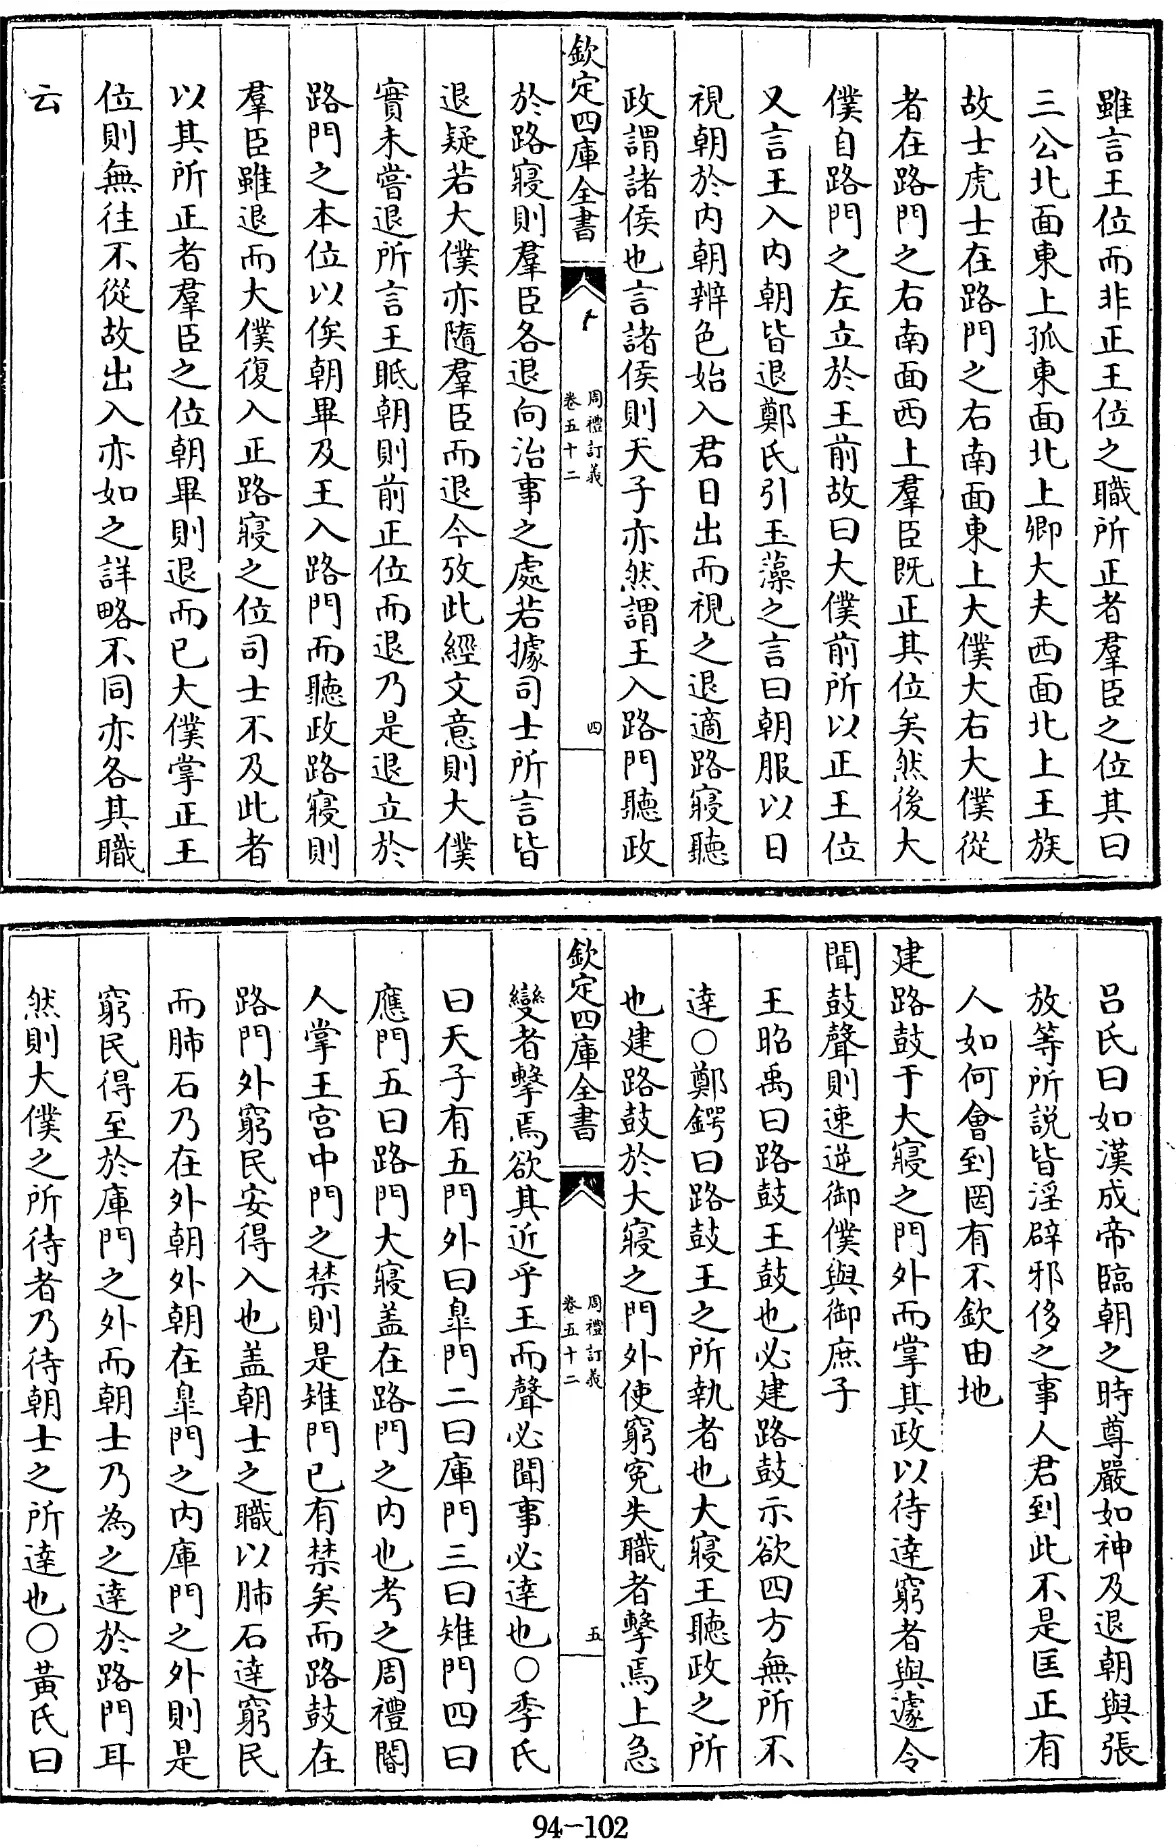 雖言王位而非正王位之職所正者羣臣之位其曰
三公北面東上孤東面北上卿大夫西面北上王族
故士虎士在路門之右南面東上大僕大右大僕從
者在路門之右南面西上羣臣既正其位矣然後大
僕自路門之左立於王前故曰大僕前所以正王位
又言王入内朝皆退鄭氏引玉藻之言曰朝服以日
視朝於内朝辨色始入君日出而視之退適路寢聽
政謂諸侯也言諸侯則天子亦然謂王入路門聽政
欽定四庫全書
周禮訂義
卷五十二
四
於路寢則羣臣各退向治事之處若據司士所言皆
退疑若大僕亦隨羣臣而退今攷此經文意則大僕
實未嘗退所言王眡朝則前正位而退乃是退立於
路門之本位以俟朝畢及王入路門而聽政路寢則
羣臣雖退而大僕復入正路寢之位司士不及此者
以其所正者羣臣之位朝畢則退而已大僕掌正王
位則無往不從故出入亦如之詳略不同亦各其職
云
吕氏曰如漢成帝臨朝之時尊嚴如神及退朝與張
放等所説皆淫辟邪侈之事人君到此不是匡正有
人如何會到罔有不欽由地
建路鼓于大寢之門外而掌其政以待達窮者與遽令
聞鼓聲則速逆御僕與御庶子
王昭禹曰路鼓王鼓也必建路鼓示欲四方無所不
達○鄭鍔曰路鼓王之所執者也大寢王聽政之所
也建路鼓於大寢之門外使窮寃失職者擊焉上急
欽定四庫全書
周禮訂義
卷五十二
五
變者擊焉欲其近乎王而聲必聞事必達也○季氏
曰天子有五門外曰臯門二曰庫門三曰雉門四曰
應門五曰路門大寢盖在路門之内也考之周禮閽
人掌王宫中門之禁則是雉門已有禁矣而路鼓在
路門外窮民安得入也盖朝士之職以肺石達窮民
而肺石乃在外朝外朝在臯門之内庫門之外則是
窮民得至於庫門之外而朝士乃為之達於路門耳
然則大僕之所待者乃待朝士之所達也○黄氏曰
94-102